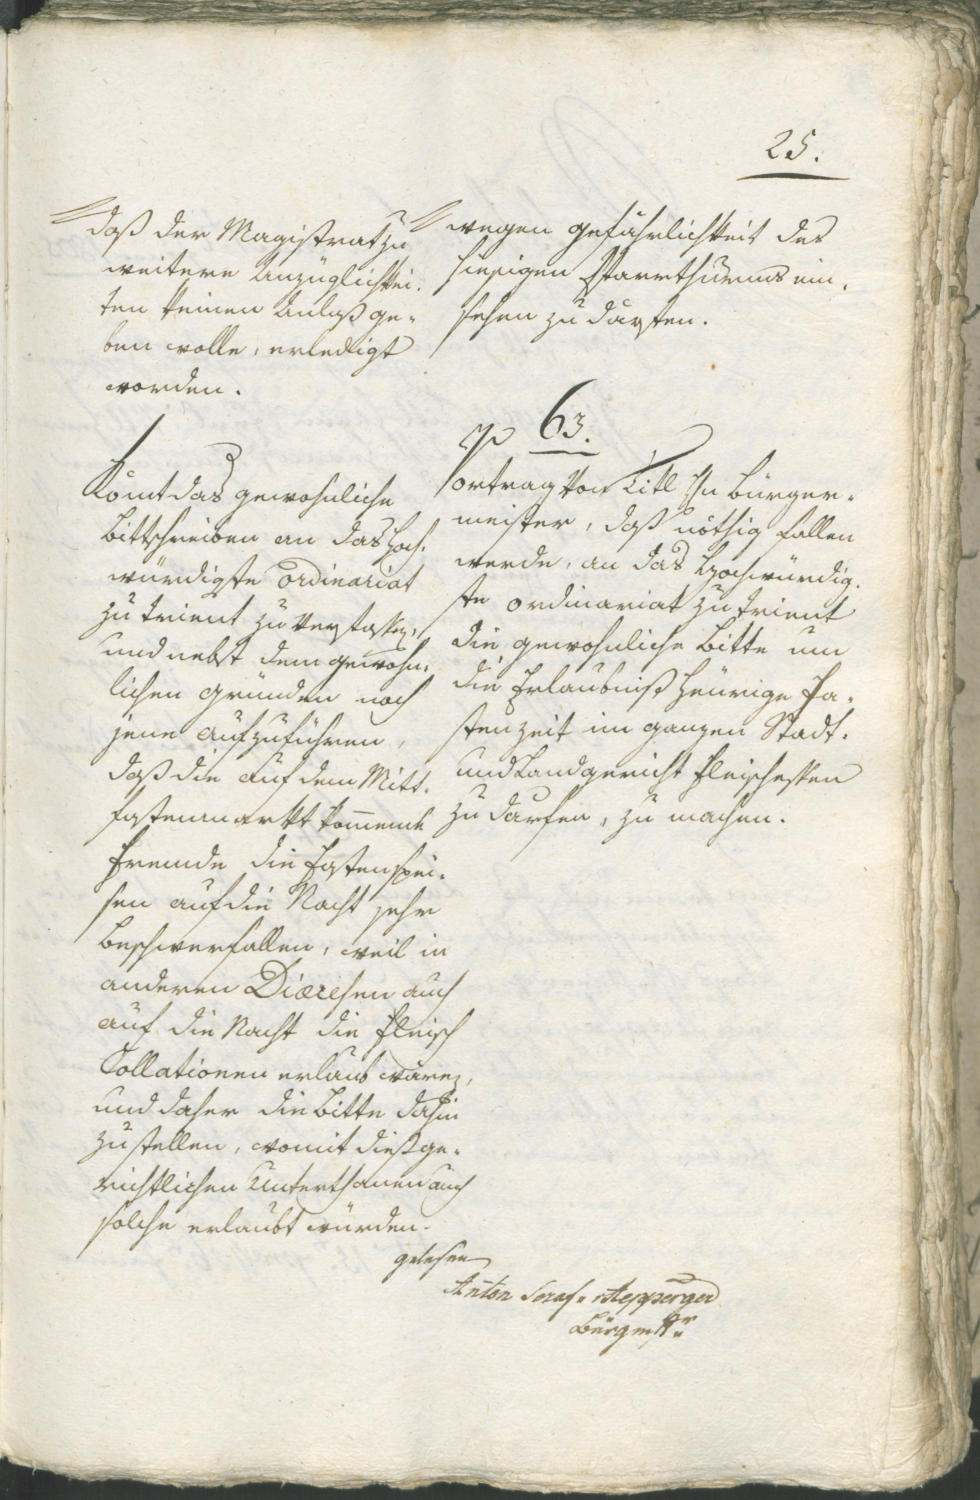 25.
daß der Magistrat zu
weitere Anzüglichkei-
ten keinen Anlaß ge-
ben wolle, erledigt
worden.
Kom̄t das gewohnliche
Bittschreiben an das Hoch-
würdigste Ordinariat
zu Trient zu verfassen,
und nebst dem gewohn-
lichen Gründen noch
jene aufzuführen,
daß die auf dem Mitt-
fastenmarkt kom̄ende
Fremde die Fastenspei-
sen auf die Nacht sehr
beschwerfallen, weil in
anderen Diœcesen auch
auf die Nacht die Fleisch
Collationen erlaub wären,
und daher die Bitte dahin
zu stellen, womit dießge-
richtlichen Unterthanen auch
solche erlaubt würden.
wegen Gefährlichkeit des
hiesigen Pfarrthurms ein-
sehen zu darfen.
63.
Vortrag von Titl Hn Bürger-
meister, daß nöthig fallen
werde, an das Hochwürdig-
ste Ordinariat zu Trient
die gewohnliche Bitte um
die Erlaubniß heurige Fa-
stenzeit im ganzen Stadt-
und Landgericht Fleischessen
zu darfen, zu machen.
gelesen
Anton
Bürgmstr